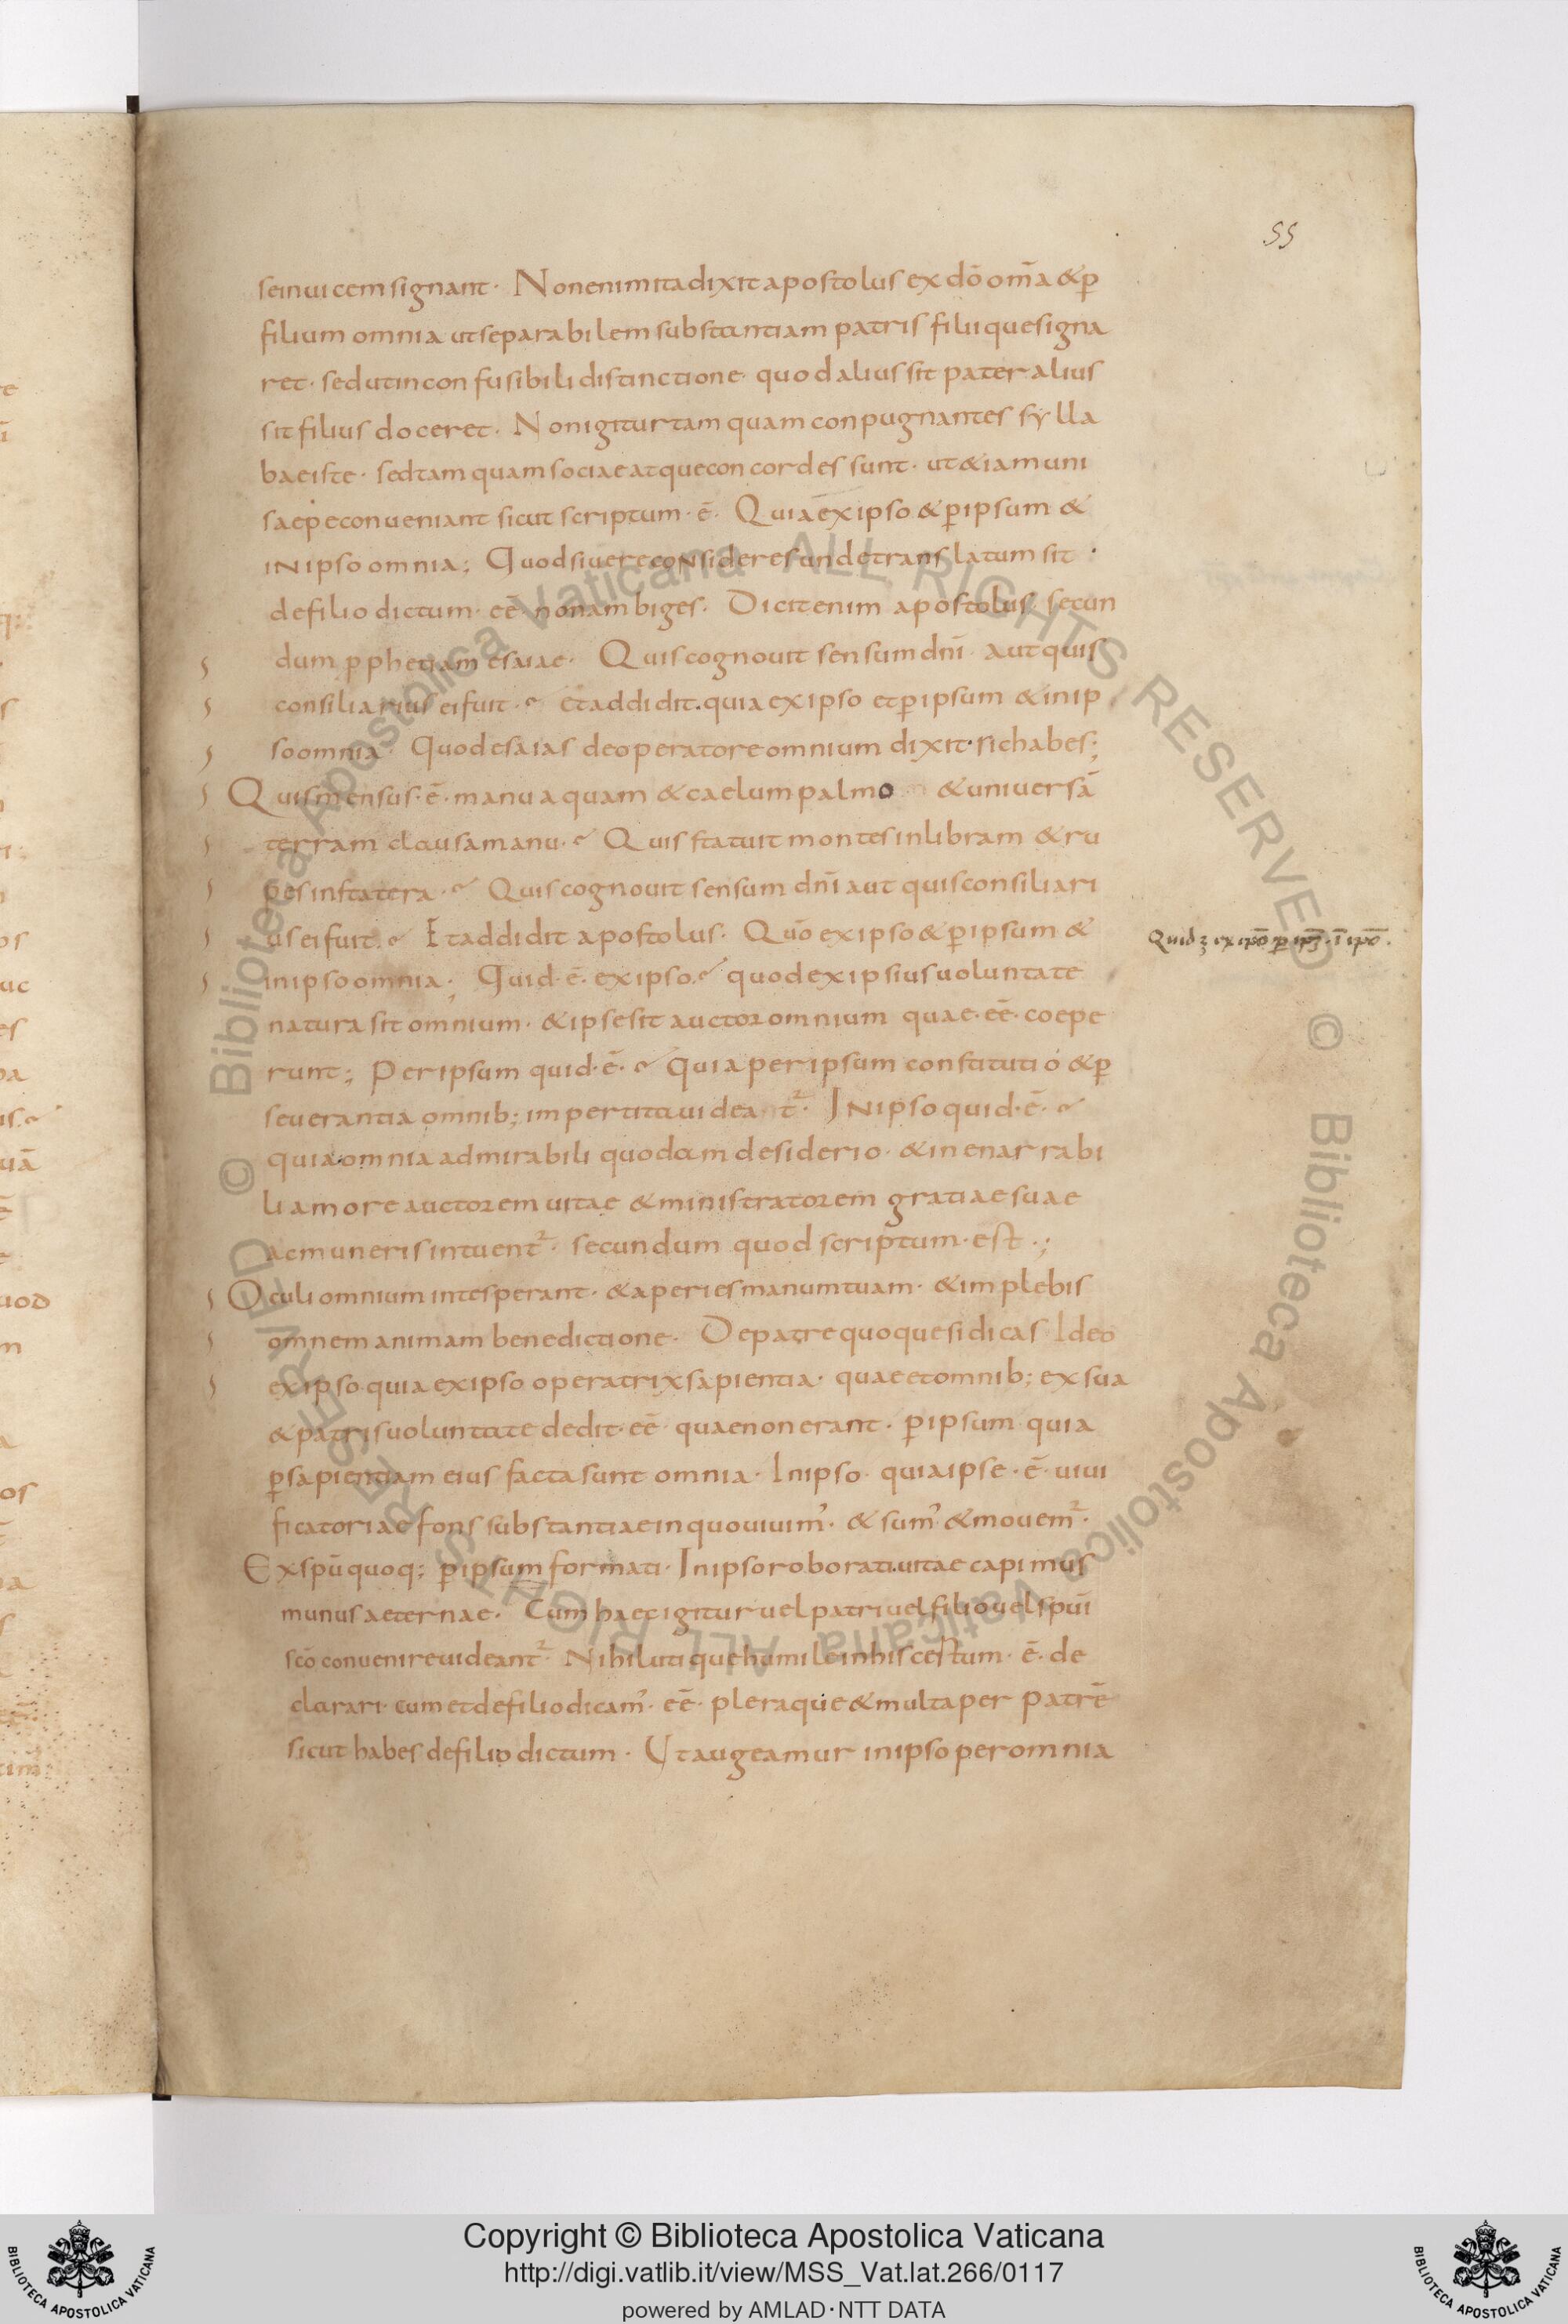 55
se inuicem signant. Non enim ita dixit apostolus ex dō om̄a & ꝑ
filium omnia ut separabilem substantiam patris filiique signa
ret. sed ut inconfusibili distinctione quod alius sit pater alius
sit filius doceret. Non igitur tam quam conpugnantes sylla
bae iste. sed tam quam sociae atque concordes sunt. ut &iam uni
saepe conueniant sicut scriptum·ē· Quia ex ipso & ꝑ ipsum &
iN ipso omnia; Quod si uere consideres unde translatum sit
de filio dictum·eē· non ambiges. Dicit enim apostolus secun
dum ꝓphetiam esaiae. Quis cognouit sensum dnī aut quis
consiliarius ei fuit. et addidit. quia ex ipso et ꝑ ipsum & in ip
so omnia. Quod esaias de operatore omnium dixit. sic habes;
Quis mensus·ē·manu aquam & caelum palmo & uniuersā
terram clausa manu. Quis statuit montes in libram & ru
pes in statera. Quis cognouit sensum dnī aut quis consiliari
us ei fuit. Et addidit apostolus. Quō ex ipso & ꝑ ipsum &
in ipso omnia; Quid·ē·ex ipso. quod ex ipsius uoluntate
natura sit omnium. & ipse sit auctor omnium quae·eē·coepe
runt; Per ipsum quid·ē· Quia per ipsum constitutio & ꝑ
seuerantia omnib; impertita uideat². IN ipso quid·ē·
quia omnia admirabili quodam desiderio. & inenarrabi
li amore auctorem uitae & ministratorem gratiae suae
ac muneris intuent². secundum quod scriptum·est·;
Oculi omnium in te sperant. & aperies manum tuam. & implebis
omnem animam benedictione. De patre quoque si dicas Ideo
ex ipso quia ex ipso operatrix sapientia. quae et omnib; ex sua
& patris uoluntate dedit·eē· quae non erant. ꝑ ipsum quia
ꝑ sapientiam eius facta sunt omnia. In ipso quia ipse·ē·uiui
ficatoriae fons substantiae in quo uiuim᾽. & sum᾽ & mouem².
Ex spū quoq; ꝑ ipsum formati. In ipso roborati uitae capimus
munus aeternae. Cum haec igitur uel patri uel filio uel spūi
scō conuenire uideant². Nihil utique humile in his certum·ē·de
clarari. cum et de filio dicam᾽·eē· pleraque & multa per patrē
sicut habes de filio dictum. Ut augeamur in ipso per omnia
Copyright © Biblioteca Apostolica Vaticana
http://digi.vatlib.it/view/MSS_Vat.lat.266/0117
powered by AMLAD·NTT DATA
BIBLIOTECA APOSTOLICA VATICANA
BIBLIOTECA APOSTOLICA VATICANA
© Biblioteca Apostolica Vaticana ALL RIGHTS RESERVED
© Biblioteca Apostolica Vaticana ALL RIGHTS RESERVED